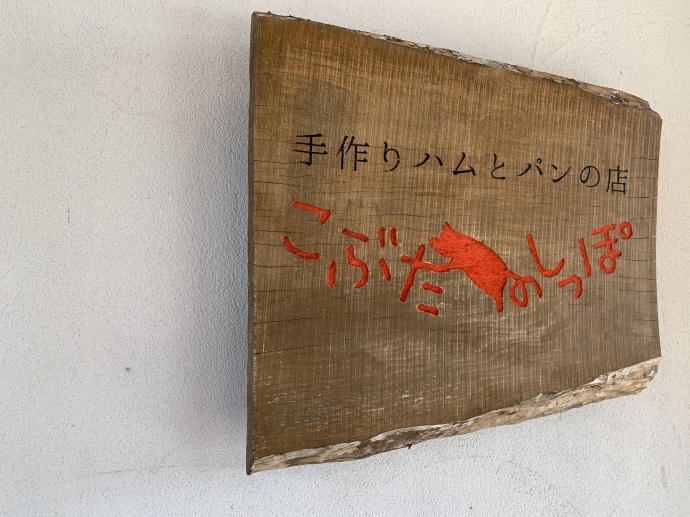 手作りハムとパンの店
こぶたのしっぽ